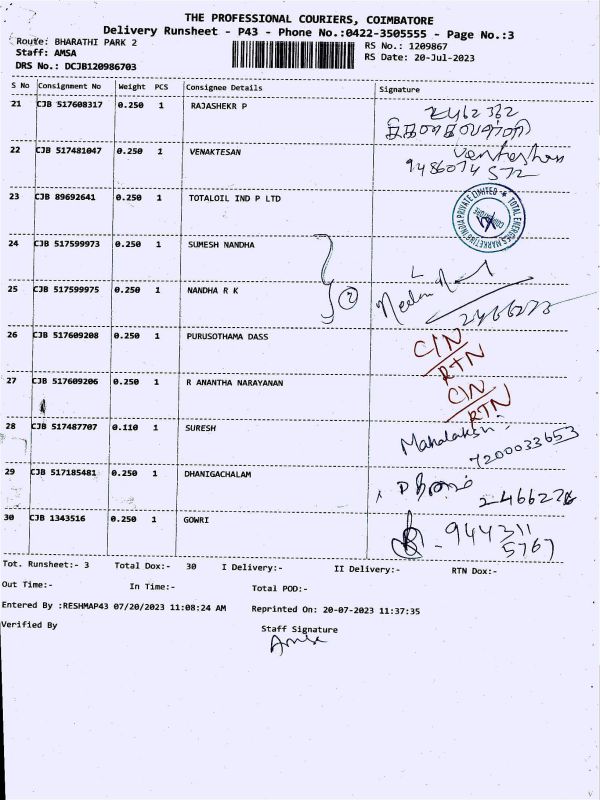 THE PROFESSIONAL COURIERS, COIMBATORE
Delivery Runsheet - P43 - Phone No.:0422-3505555 - Page No.:3
Route: BHARATHI PARK 2 RS No.: 1209867
Staff: AMSA RS Date: 20-Jul-2023
DRS No.: DCJB120986703
S No Consignment No Weight PCS Consignee Details Signature
21 CJB 517608317 0.250 1 RAJASHEKR P
22 CJB 517481047 0.250 1 VENAKTESAN Venkateshan
9486074572
23 CJB 89692641 0.250 1 TOTALOIL IND P LTD TOTAL ENERGIES MARKETING INDIA PRIVATE LIMITED COIMBATORE
24 CJB 517599973 0.250 1 SUMESH NANDHA
25 CJB 517599975 0.250 1 NANDHA R K 2
26 CJB 517609208 0.250 1 PURUSOTHAMA DASS C/N
RTN
27 CJB 517609206 0.250 1 R ANANTHA NARAYANAN C/N
RTN
28 CJB 517487707 0.110 1 SURESH Mahalakshmi
7200033653
29 CJB 517185481 0.250 1 DHANIGACHALAM
30 CJB 1343516 0.250 1 GOWRI 944311
5767
Tot. Runsheet:- 3 Total Dox:- 30 I Delivery:- II Delivery:- RTN Dox:-
Out Time:- In Time:- Total POD:-
Entered By :RESHMAP43 07/20/2023 11:08:24 AM Reprinted On: 20-07-2023 11:37:35
Verified By Staff Signature
Amsa